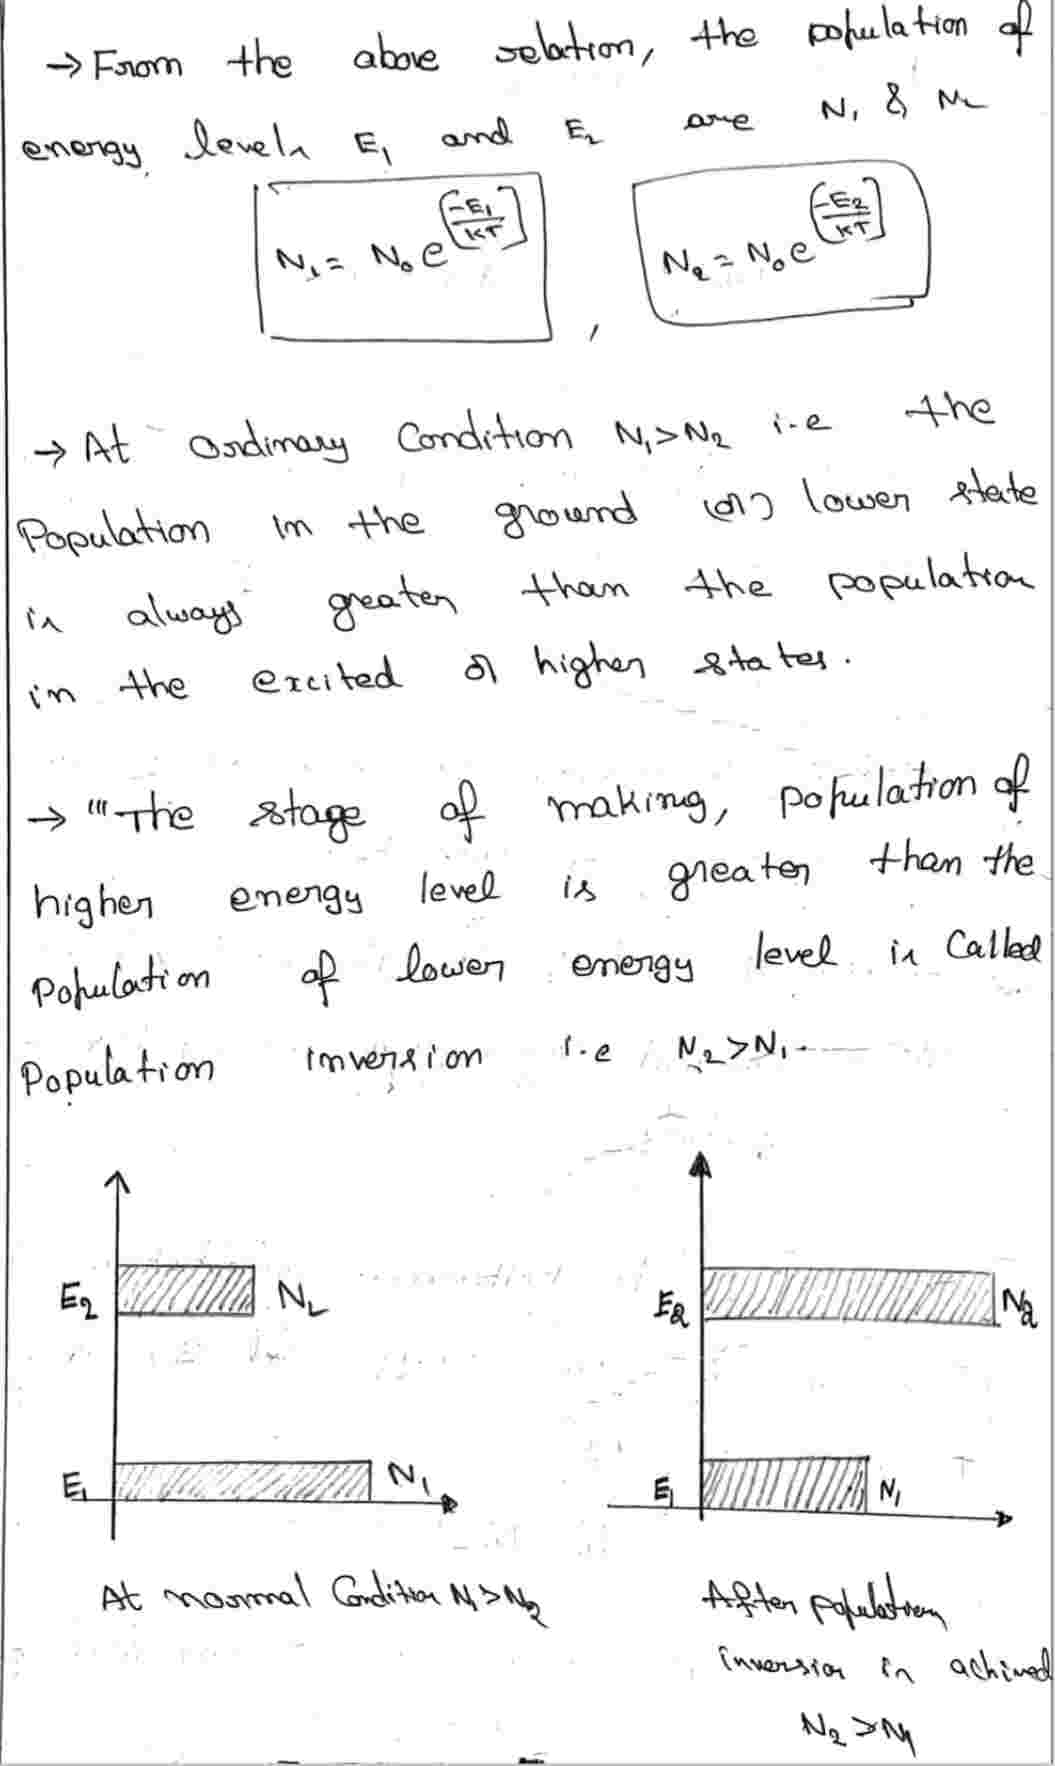 → From the above relation, the population of
energy levels E₁ and E₂ are N₁ & N₂
N₁ = N₀ e^[-E₁/KT] , N₂ = N₀ e^[-E₂/KT]
→ At ordinary Condition N₁>N₂ i.e the
Population in the ground (or) lower state
is always greater than the population
in the excited or higher states.
→ "The stage of making, population of
higher energy level is greater than the
Population of lower energy level is Called
Population inversion i.e N₂>N₁.
E₂ N₂
E₁ N₁
At normal Condition N₁>N₂
E₂ N₂
E₁ N₁
After population
inversion is achived
N₂ >N₁